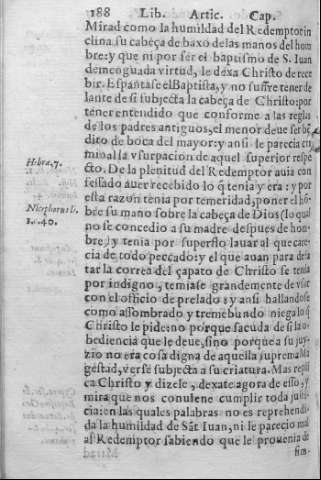 188 Lib. Artic. Cap.
Mirad como la humildad del Redemptor in
clina su cabeça de baxo de las manos del hom
bre: y que ni por ser el baptismo de S. Iuan
de menguada virtud, le dexa Christo de rece
bir. Espantase el Baptista, y no suffre tener de
lante de si subjecta la cabeça de Christo: por
tener entendido que conforme a las reglas
de los padres antiguos, el menor deue ser bẽ
dito de boca del mayor: y ansi le parecia cri
minal la vsurpacion de aquel superior respe
cto. De la plenitud del Redemptor auia con
fessado auer recebido lo q̃ tenia y era: y por
esta razon tenia por temeridad, poner el hõ
bre su mano sobre la cabeça de Dios (lo qual
no se concedio a su madre despues de hom
bre) y tenia por superfluo lauar al que care-
cia de todo peccado: y el que aun para desa
tar la correa del çapato de Christo se tenia
por indigno, temiase grandemente de vsar
con el officio de prelado: y ansi hallandose
como assombrado y tremebundo niega lo q̃
Christo le pide: no porque sacuda de si la o-
bediencia que le deue, sino porque a su juy-
zio no era cosa digna de aquella suprema Ma
gestad, verse subjecta a su criatura. Mas repli
ca Christo y dizele, dexate agora de esso, y
mira que nos conuiene cumplir toda justi-
cia: en las quales palabras no es reprehendi-
da la humildad de Sãt Iuan, ni le parecio mal
al Redemptor sabiendo que le prouenia de
Hebræ. 7.
Nicephorus li.
1. c. 40.